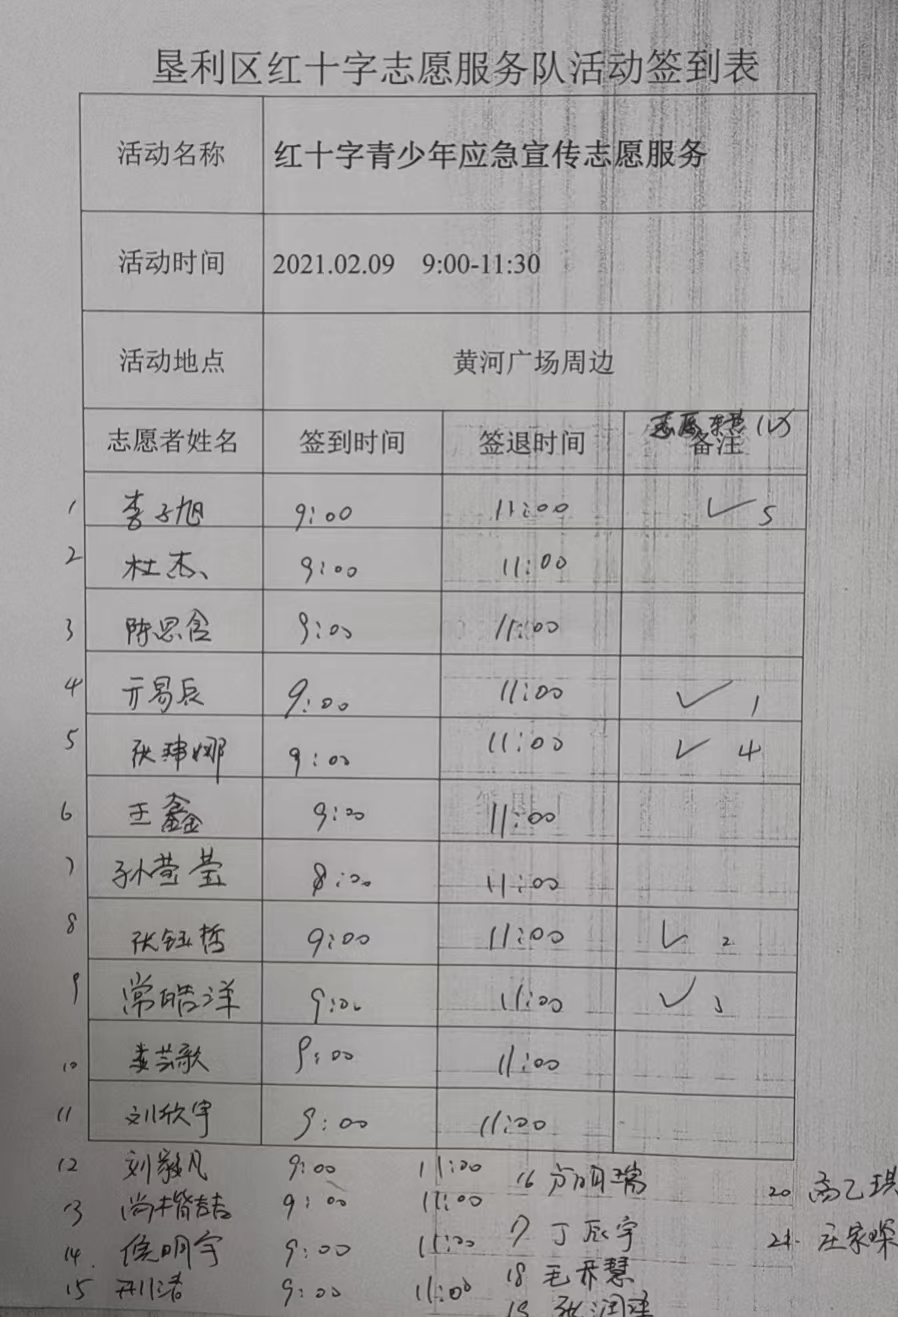 垦利区红十字志愿服务队活动签到表
活动名称 红十字青少年应急宣传志愿服务
活动时间 2021.02.09 9:00-11:30
活动地点 黄河广场周边
志愿者姓名 签到时间 签退时间 备注 志愿东营(✓)
1 李子旭 9:00 11:00 ✓ 5
2 杜杰 9:00 11:00
3 陈思含 9:00 11:00
4 亓易辰 9:00 11:00 ✓ 1
5 张玮娜 9:00 11:00 ✓ 4
6 王鑫 9:00 11:00
7 孙莹莹 8:00 11:00
8 张钰哲 9:00 11:00 ✓ 2
9 常皓洋 9:00 11:00 ✓ 3
10 娄芸歌 9:00 11:00
11 刘欣宇 9:00 11:00
12 刘毅凡 9:00 11:00 16 方明瑞 20 高乙琪
13 尚楷喆 9:00 11:00
14 侯明宇 9:00 11:00 17 丁辰宇 21 庄家琛
15 9:00 11:00 18 毛乔慧
19 张润泽